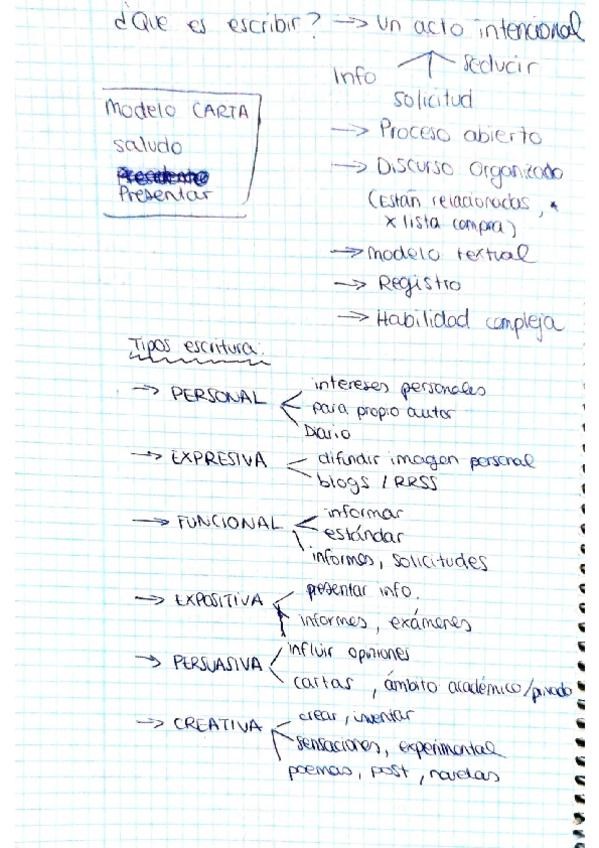 ¿Que es escribir? → un acto intencional
Info seducir
solicitud
→ Proceso abierto
→ Discurso organizado
(Están relacionadas,
x lista compra)
→ modelo textual
→ Registro
→ Habilidad compleja
modelo CARTA
saludo
Presentar
Tipos escritura:
→ PERSONAL
intereses personales
para propio autor
Diario
→ EXPRESIVA
difundir imagen personal
blogs / RRSS
→ FUNCIONAL
informar
estándar
informes, solicitudes
→ EXPOSITIVA
presentar info.
informes, exámenes
→ PERSUASIVA
influir opiniones
cartas, ámbito académico/privado
→ CREATIVA
crear, inventar
sensaciones, experimental
poemas, post, novelas